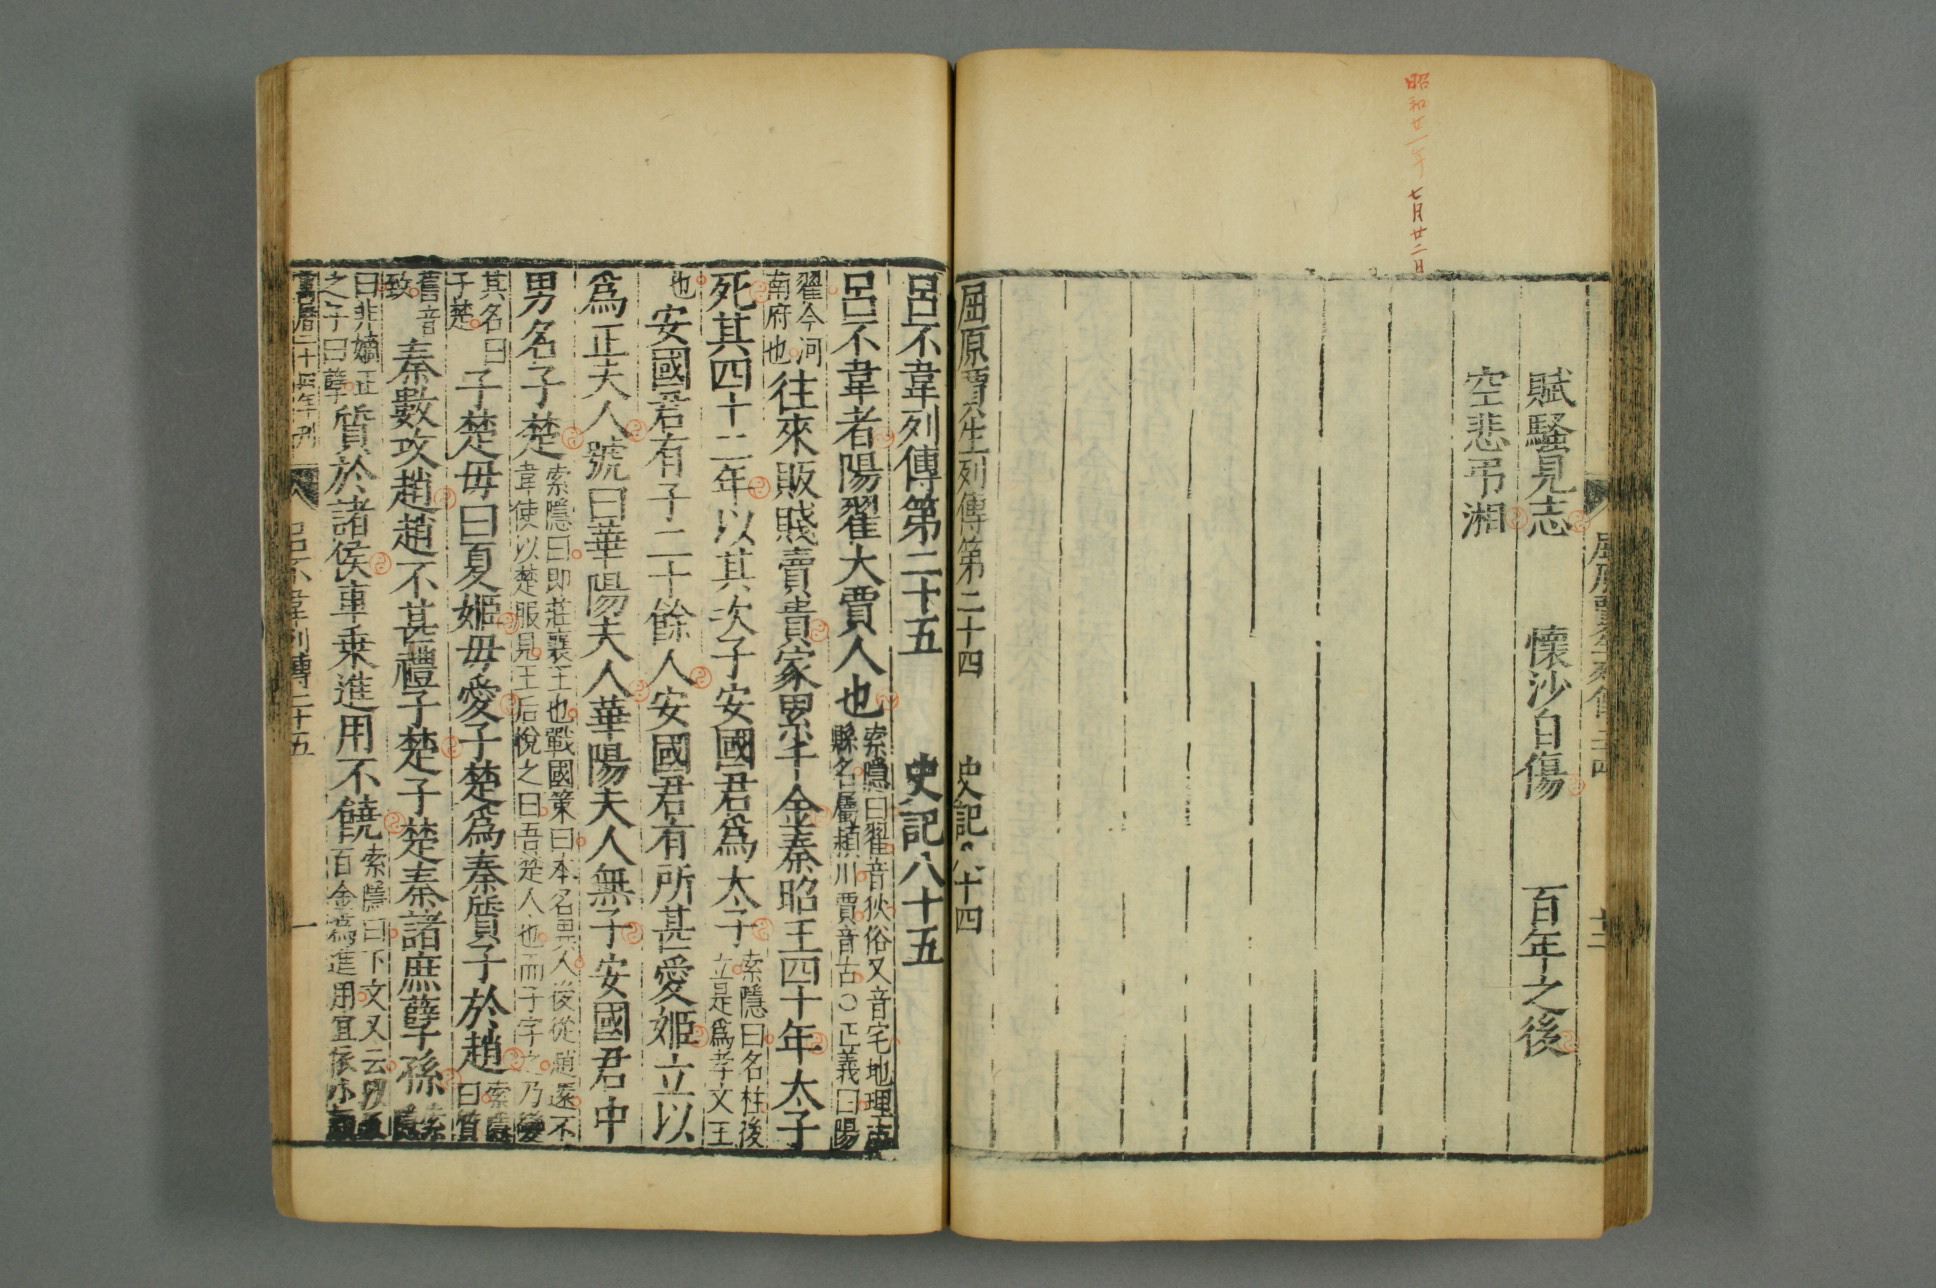 昭和廿一年 七月廿二日
賦騷見志 懷沙自傷 百年之後
空悲弔湘
屈原賈生列傳第二十四 史記八十四
呂不韋列傳第二十五 史記八十五
呂不韋者陽翟大賈人也索隱曰翟音狄俗又音宅地理志縣名屬潁川賈音古○正義曰陽
翟今河南府也往來販賤賣貴家累千金秦昭王四十年太子
死其四十二年以其次子安國君爲太子索隱曰名柱後立是爲孝文王
也安國君有子二十餘人安國君有所甚愛姬立以
爲正夫人號曰華陽夫人華陽夫人無子安國君中
男名子楚索隱曰即莊襄王也戰國策曰本名異人後從趙還不韋使以楚服見王后悅之曰吾楚人也而子字之乃變
其名曰子楚子楚母曰夏姬母愛子楚爲秦質子於趙索隱曰質
舊音致秦數攻趙趙不甚禮子楚子楚秦諸庶孽孫索隱
曰非嫡正之子曰孽質於諸侯車乘進用不饒索隱曰下文又云以五百金爲進用宜依小
呂不韋列傳二十五 一